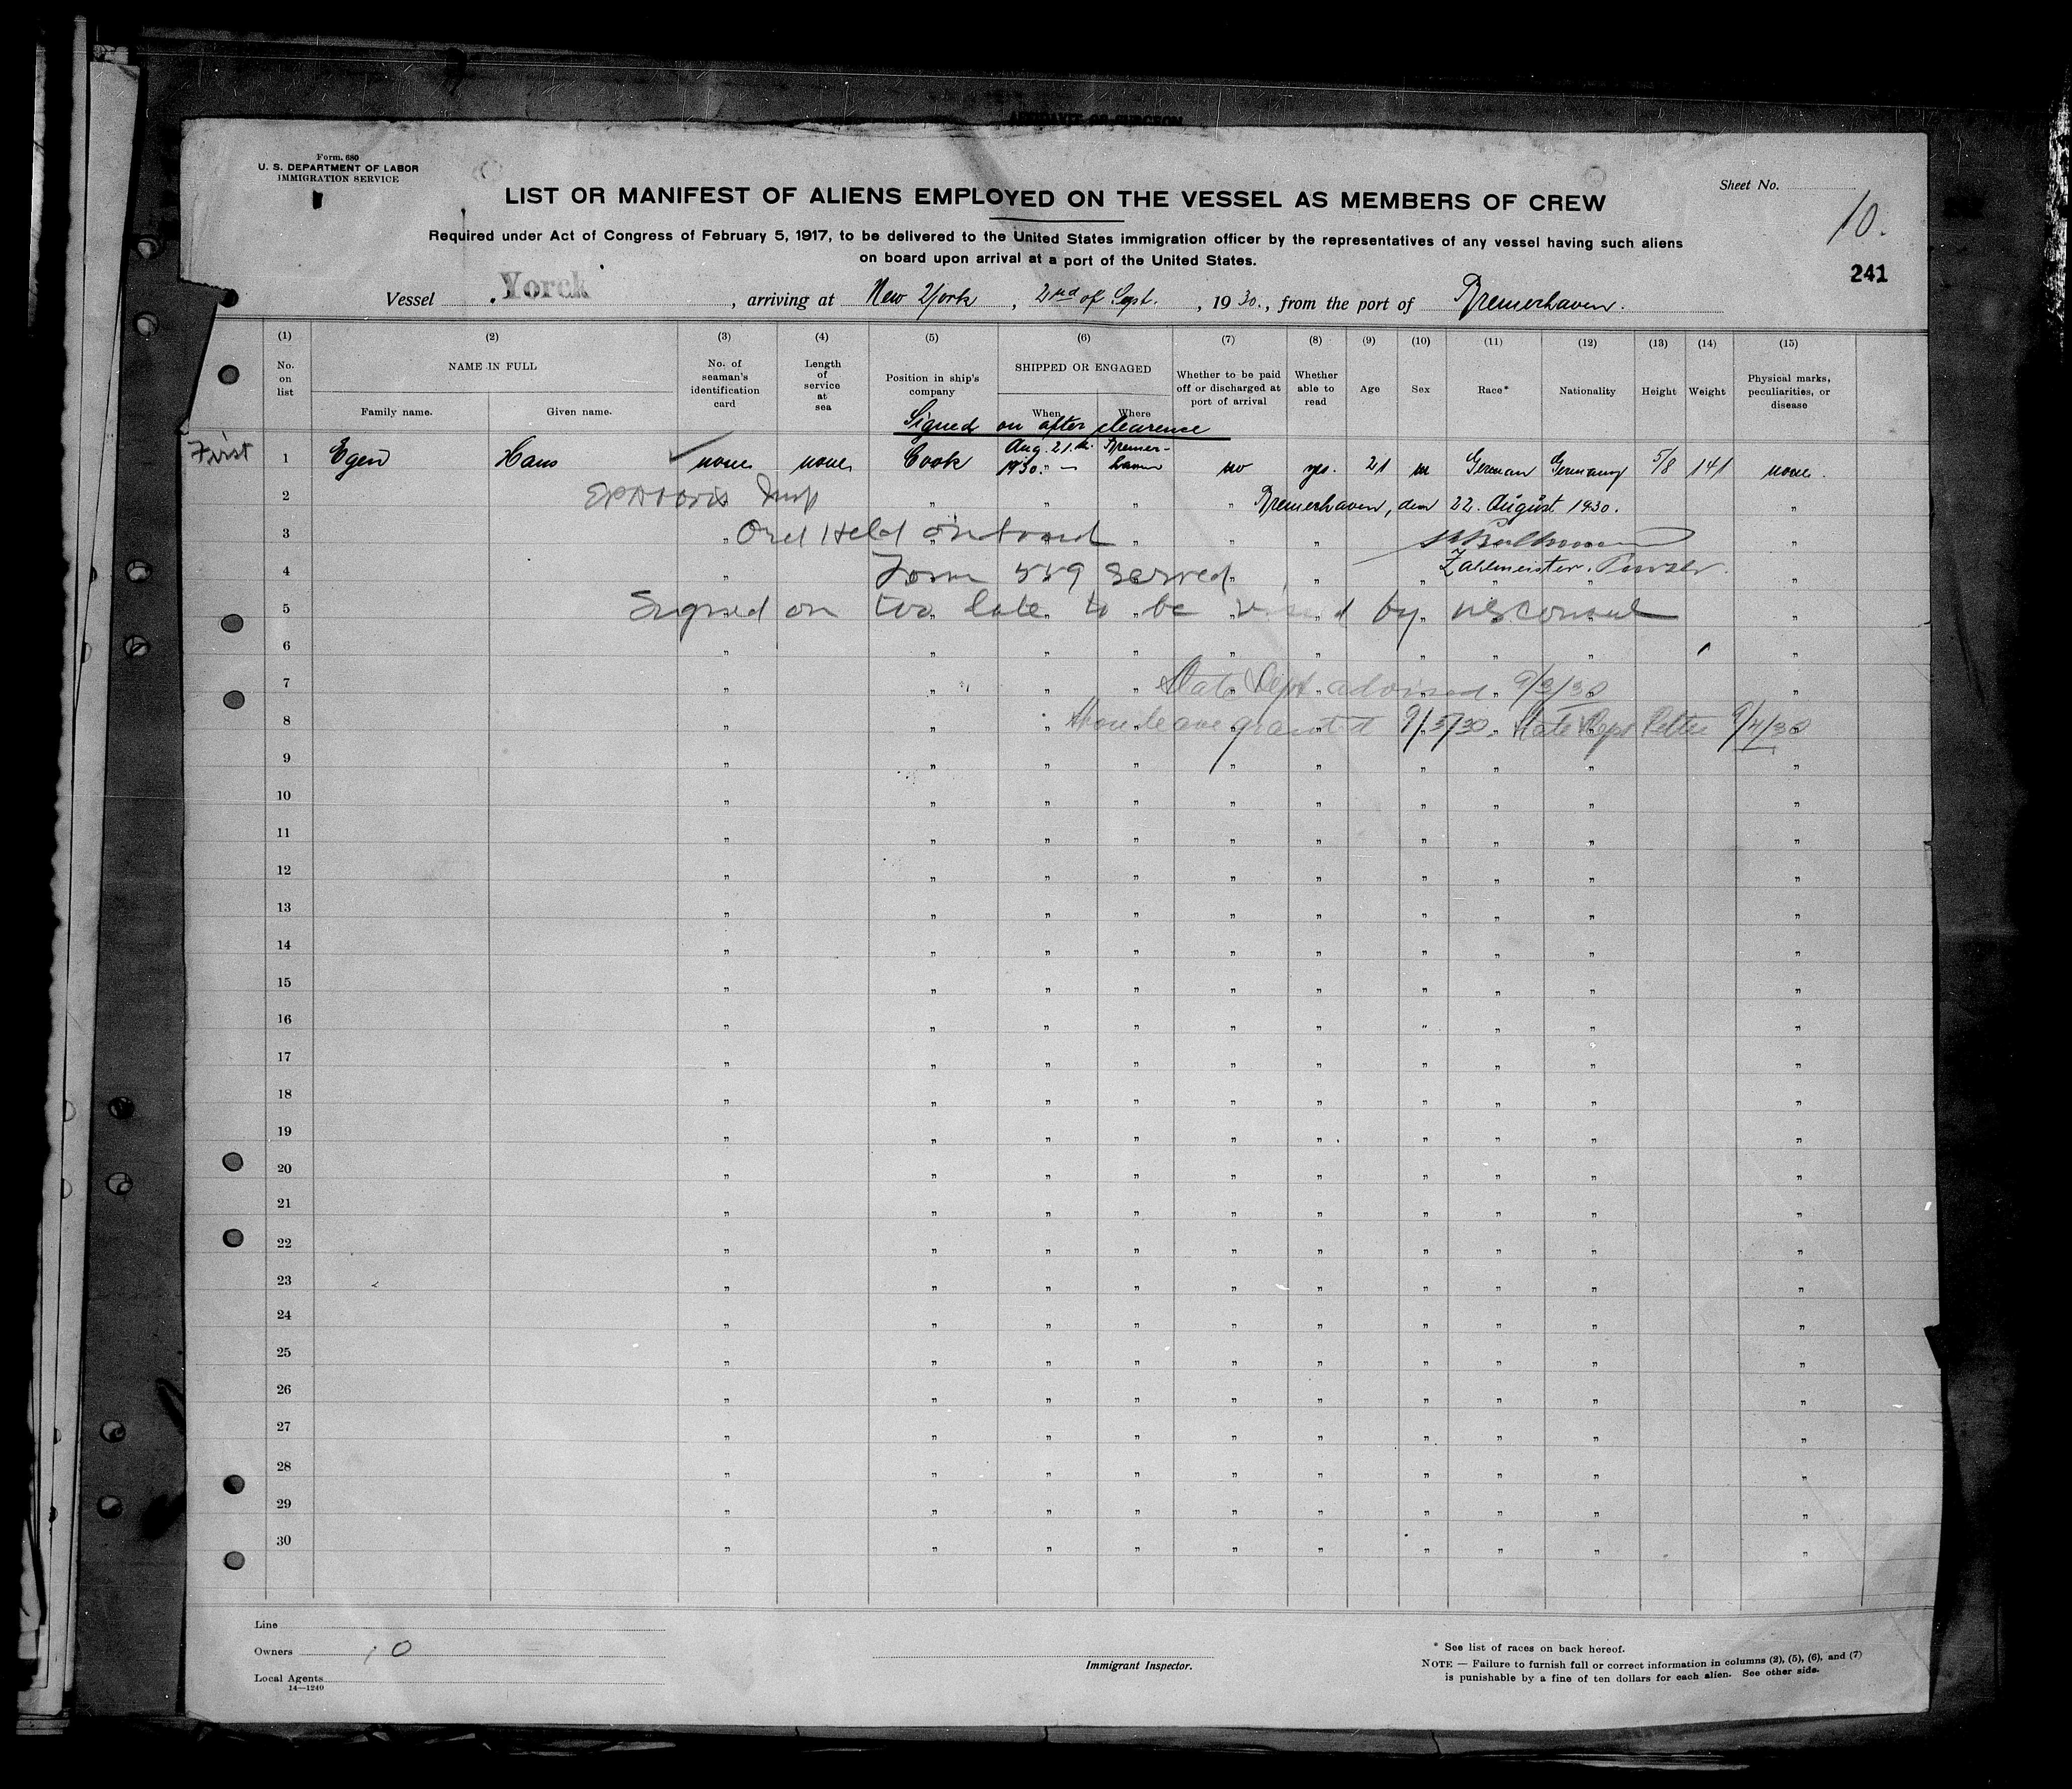 AFFIDAVIT OF SURGEON
Form 680
U. S. DEPARTMENT OF LABOR
IMMIGRATION SERVICE
LIST OR MANIFEST OF ALIENS EMPLOYED ON THE VESSEL AS MEMBERS OF CREW
Sheet No.
10.
Required under Act of Congress of February 5, 1917, to be delivered to the United States immigration officer by the representatives of any vessel having such aliens
on board upon arrival at a port of the United States.
241
Vessel Yorck, arriving at New York, 2nd of Sept., 1930., from the port of Bremerhaven.
(1) (2) (3) (4) (5) (6) (7) (8) (9) (10) (11) (12) (13) (14) (15)
No. on list
NAME IN FULL
Family name. Given name.
No. of seaman's identification card
Length of service at sea
Position in ship's company
SHIPPED OR ENGAGED
When Where
Whether to be paid off or discharged at port of arrival
Whether able to read
Age
Sex
Race*
Nationality
Height
Weight
Physical marks, peculiarities, or disease
Signed on after clearence
First 1 Egen Hans none none Cook Aug. 21.th 1930. Bremerhaven no yes. 21 m German Germany 5/8 141 none.
2 Insp " " " " Bremerhaven, den 22. August 1930. "
3 " Ord Held on board " " " "
4 " Form 559 served " " " Zahlmeister. Purser. "
5 Signed on too late to be visaed by US Consul "
6 " " " " " " " " " "
7 " " " " State Dept. advised 9/3/30 "
8 " " " Shore leave granted 9/5/30. State Dept letter 9/4/30
9 " " " " " " " " " "
10 " " " " " " " " " "
11 " " " " " " " " " "
12 " " " " " " " " " "
13 " " " " " " " " " "
14 " " " " " " " " " "
15 " " " " " " " " " "
16 " " " " " " " " " "
17 " " " " " " " " " "
18 " " " " " " " " " "
19 " " " " " " " " " "
20 " " " " " " " " " "
21 " " " " " " " " " "
22 " " " " " " " " " "
23 " " " " " " " " " "
24 " " " " " " " " " "
25 " " " " " " " " " "
26 " " " " " " " " " "
27 " " " " " " " " " "
28 " " " " " " " " " "
29 " " " " " " " " " "
30 " " " " " " " " " "
Line
Owners
Local Agents
14—1240
Immigrant Inspector.
* See list of races on back hereof.
NOTE — Failure to furnish full or correct information in columns (2), (5), (6), and (7)
is punishable by a fine of ten dollars for each alien. See other side.